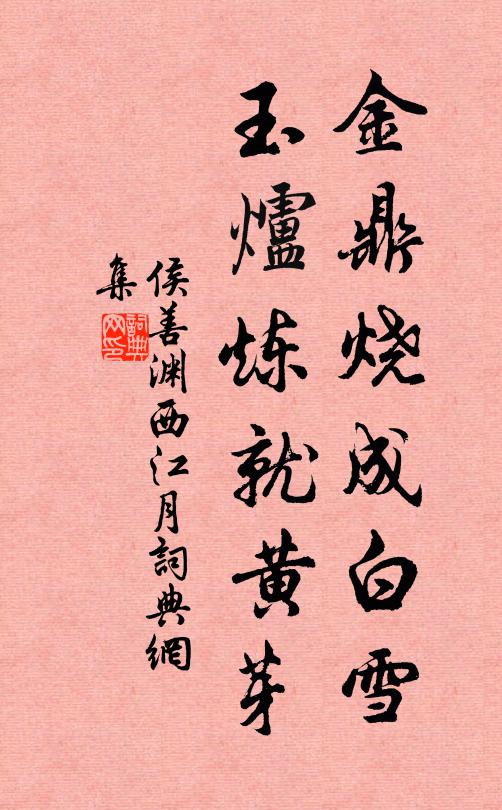 金鼎烧成白雪
玉爐炼就黄芽
侯善渊西江月詞典網
集
詞典
网印